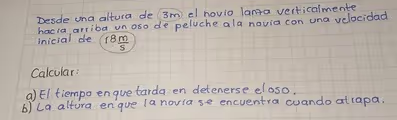 Desde una altura de 3m el novio lanza verticalmente
hacia arriba un oso de peluche a la novia con una velocidad
inicial de 18 m/s
Calcular:
a) El tiempo en que tarda en detenerse el oso.
b) La altura en que la novia se encuentra cuando atrapa.